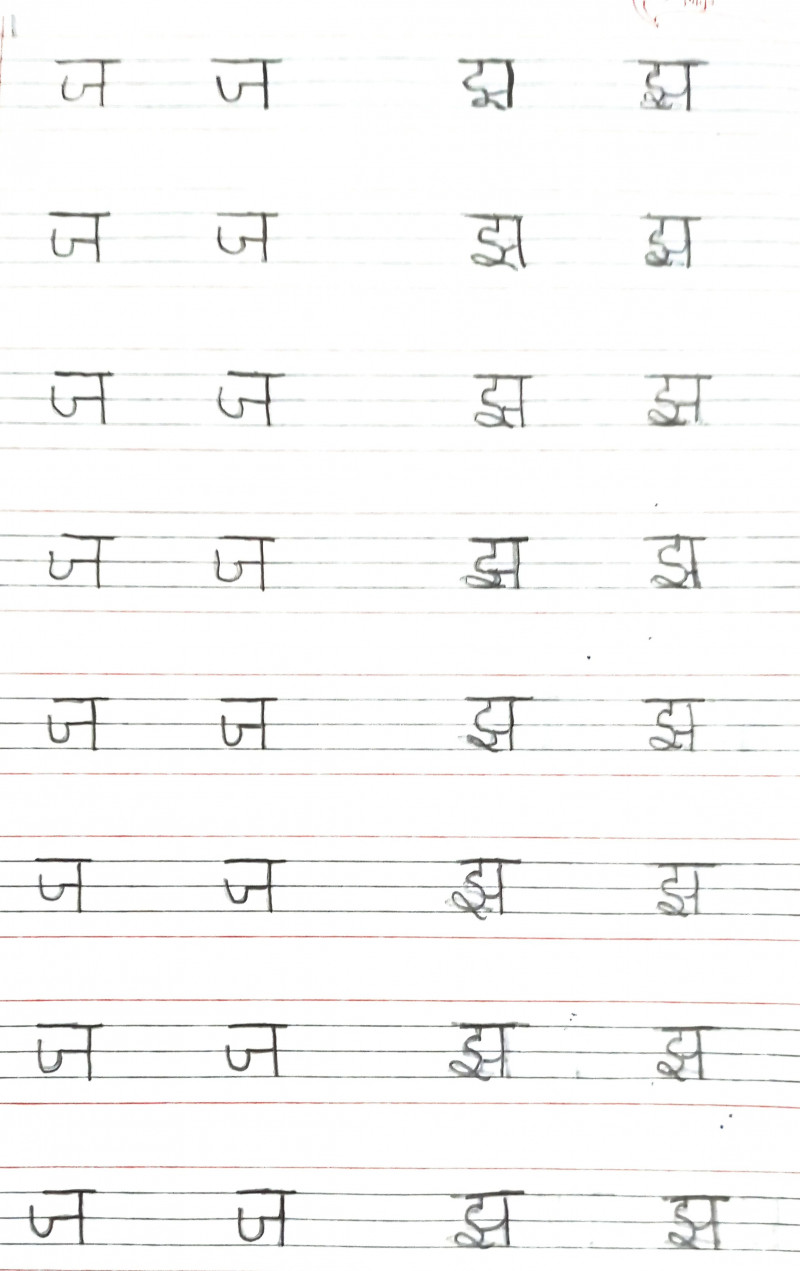 ज ज झ झ
ज ज झ झ
ज ज झ झ
ज ज झ झ
ज ज झ झ
ज ज झ झ
ज ज झ झ
ज ज झ झ